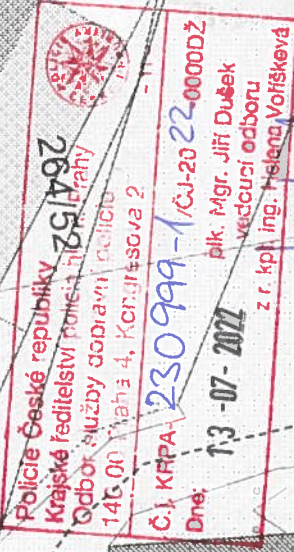 Policie České republiky
Krajské ředitelství policie hl. m. Prahy
264/52
Odbor služby dopravní policie
140 00 Praha 4, Kongresová 2
- 1 -
Č.j. KRPA- 230999-1/ČJ-2022-0000DŽ
plk. Mgr. Jiří Dušek
vedoucí odboru
Dne: 13 -07- 2022
z r. kpt. ing. Helena Voříšková